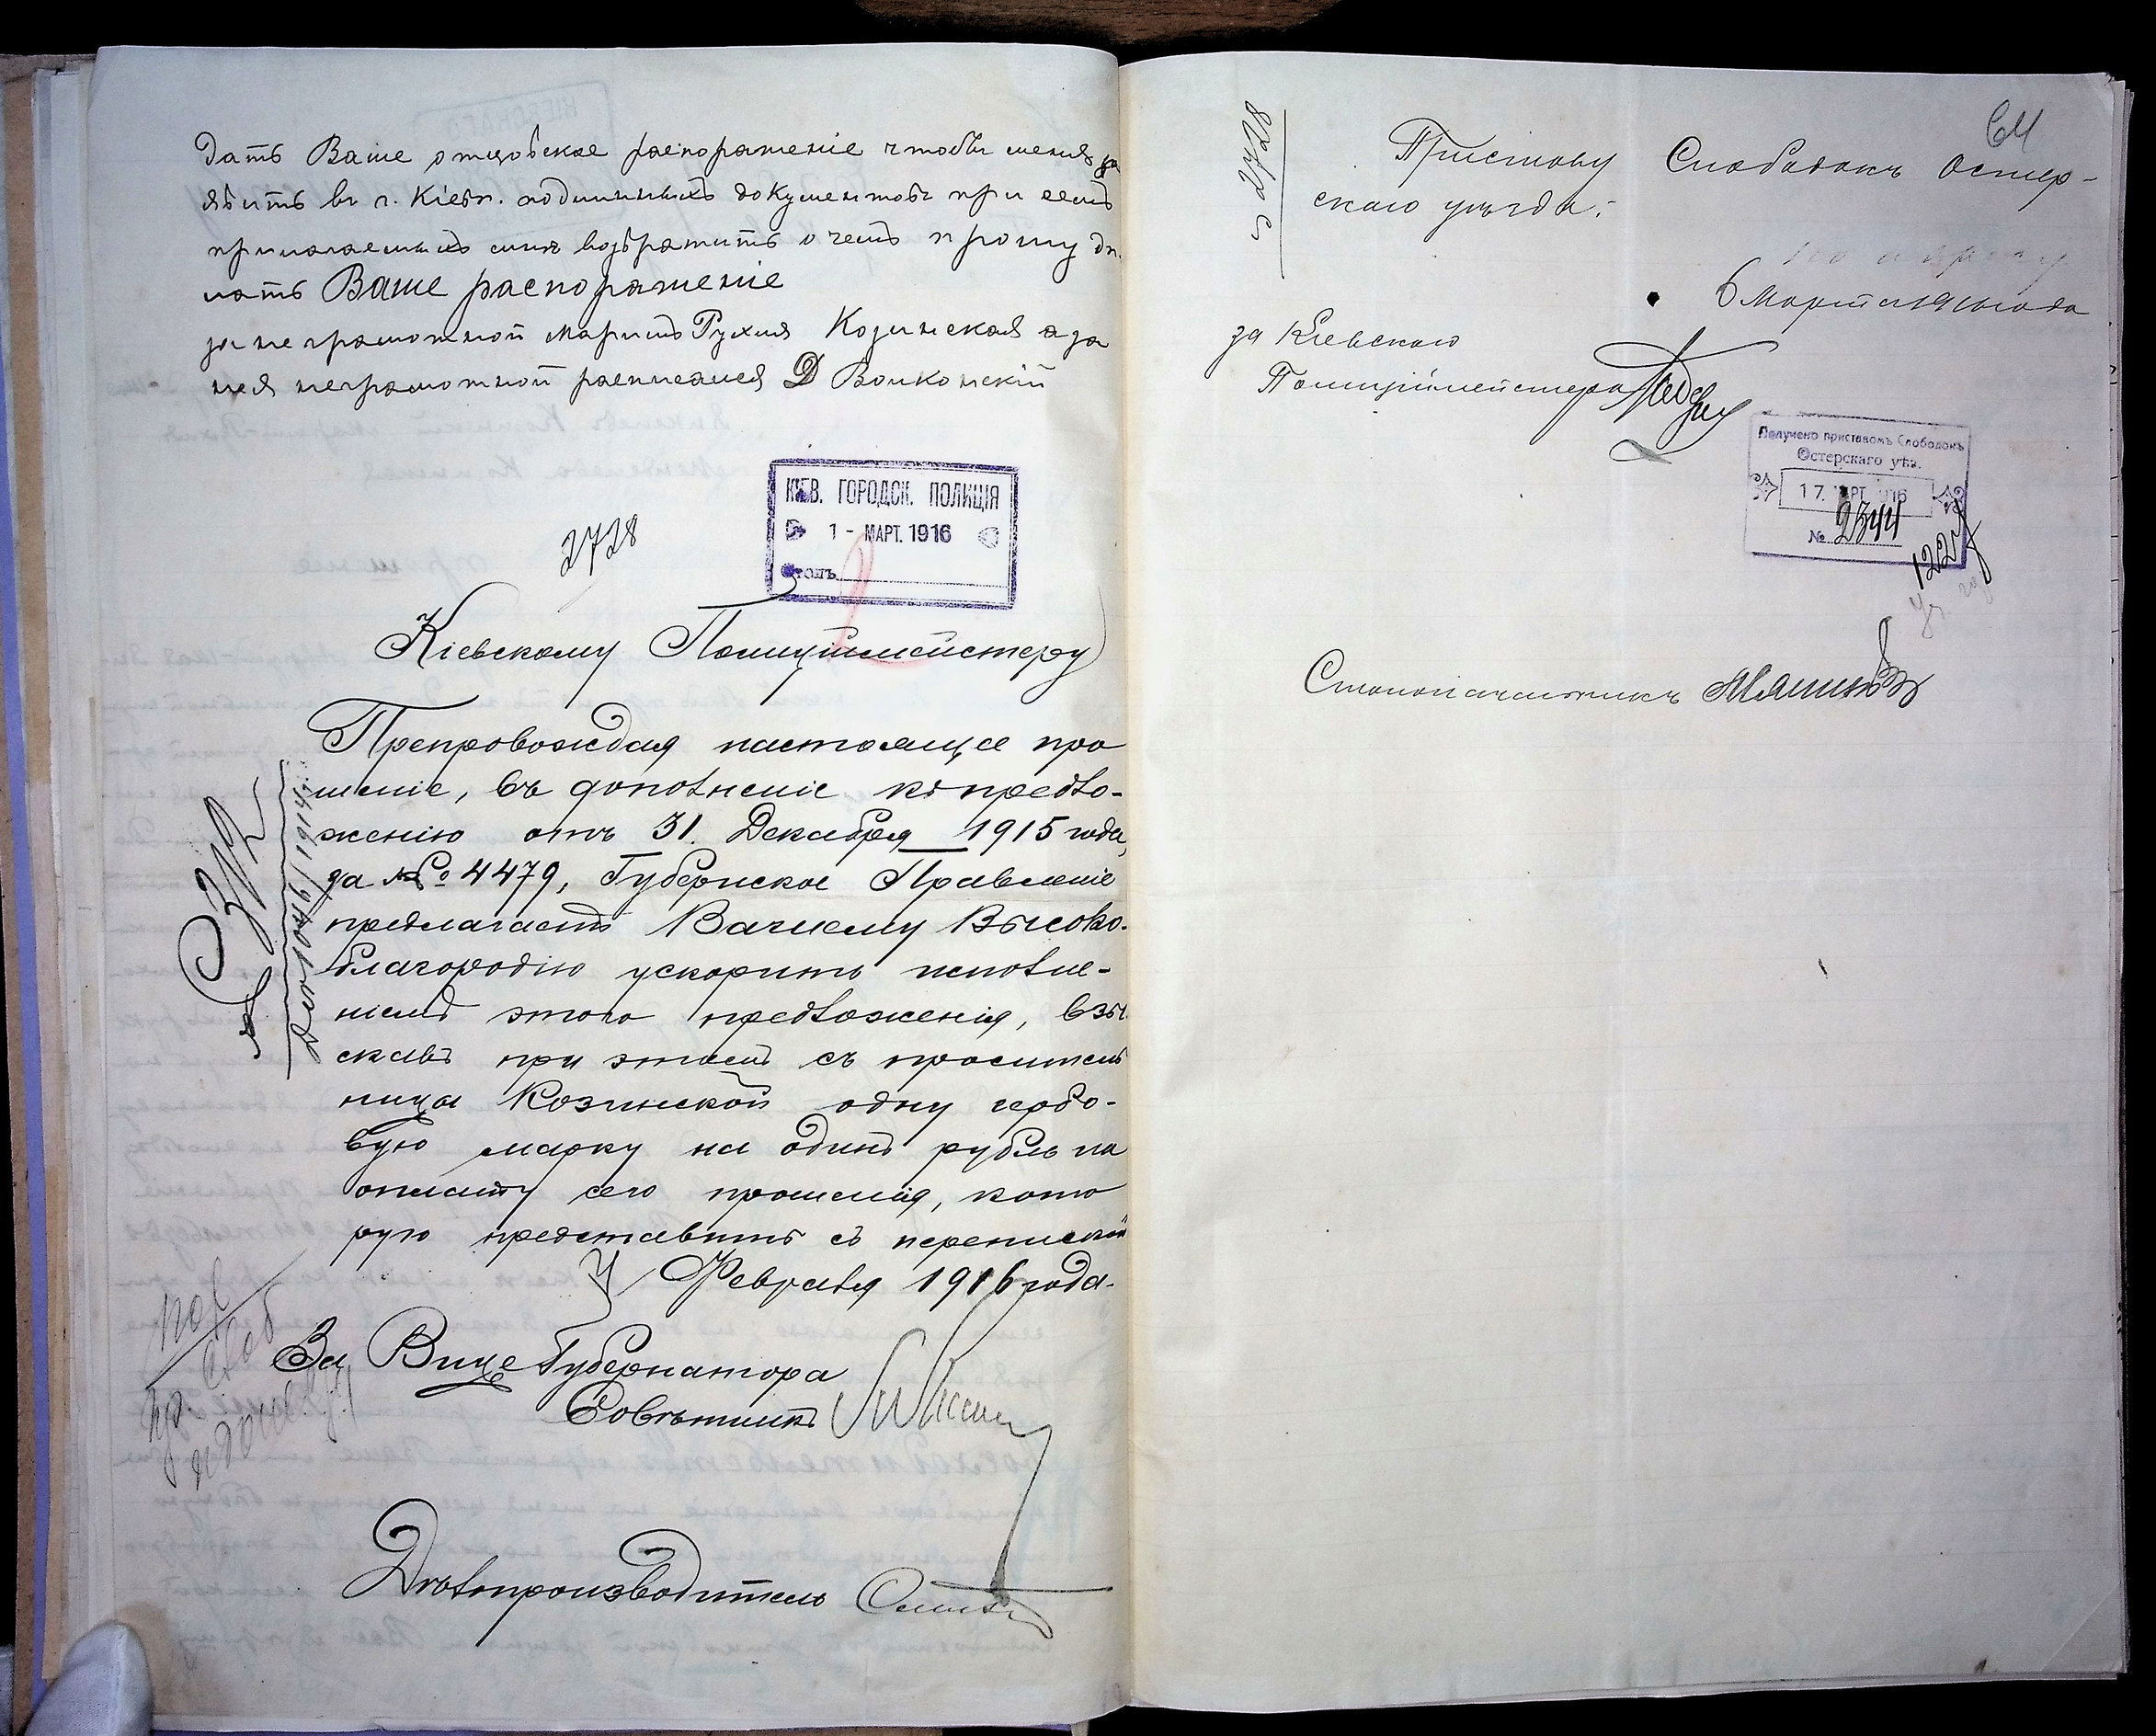 дать Ваше отцовское распоряженіе чтобы меня
въ г. Кіевъ. подлинныхъ документовъ при семъ
прилагаемыхъ мнѣ возвратить о чемъ прошу дѣ
лать Ваше распоряженіе
за неграмотной Марьимъ Рухля Козинская а за
нея неграмотной расписался Д Волконскій
КІЕВ. ГОРОДСК. ПОЛИЦІЯ
1 - МАРТ. 1916
Столъ
2728
Кіевскому Полиціймейстеру
Препровождая настоящее про
шеніе, въ дополненіе къ предло-
женію отъ 31 Декабря 1915 года,
за № 4479, Губернское Правленіе
предлагаетъ Вашему Высоко-
благородію ускорить исполне-
ніемъ этого предложенія, взы-
скавъ при этомъ съ проситель
ницы Козинской одну гербо-
вую марку на одинъ рубль на
оплату сего прошенія, кото
рую представить съ перепиской
Февраля 1916 года.
За Вице Губернатора
Совѣтникъ
Дѣлопроизводитель
2728
Приставу Слободокъ Остер-
скаго уѣзда.
6 Марта 1916 года
за Кіевскаго
Полиціймейстера
Получено приставомъ Слободокъ
Остерскаго уѣз.
17. МАРТ. 1916
№ 2344
Столоначальникъ